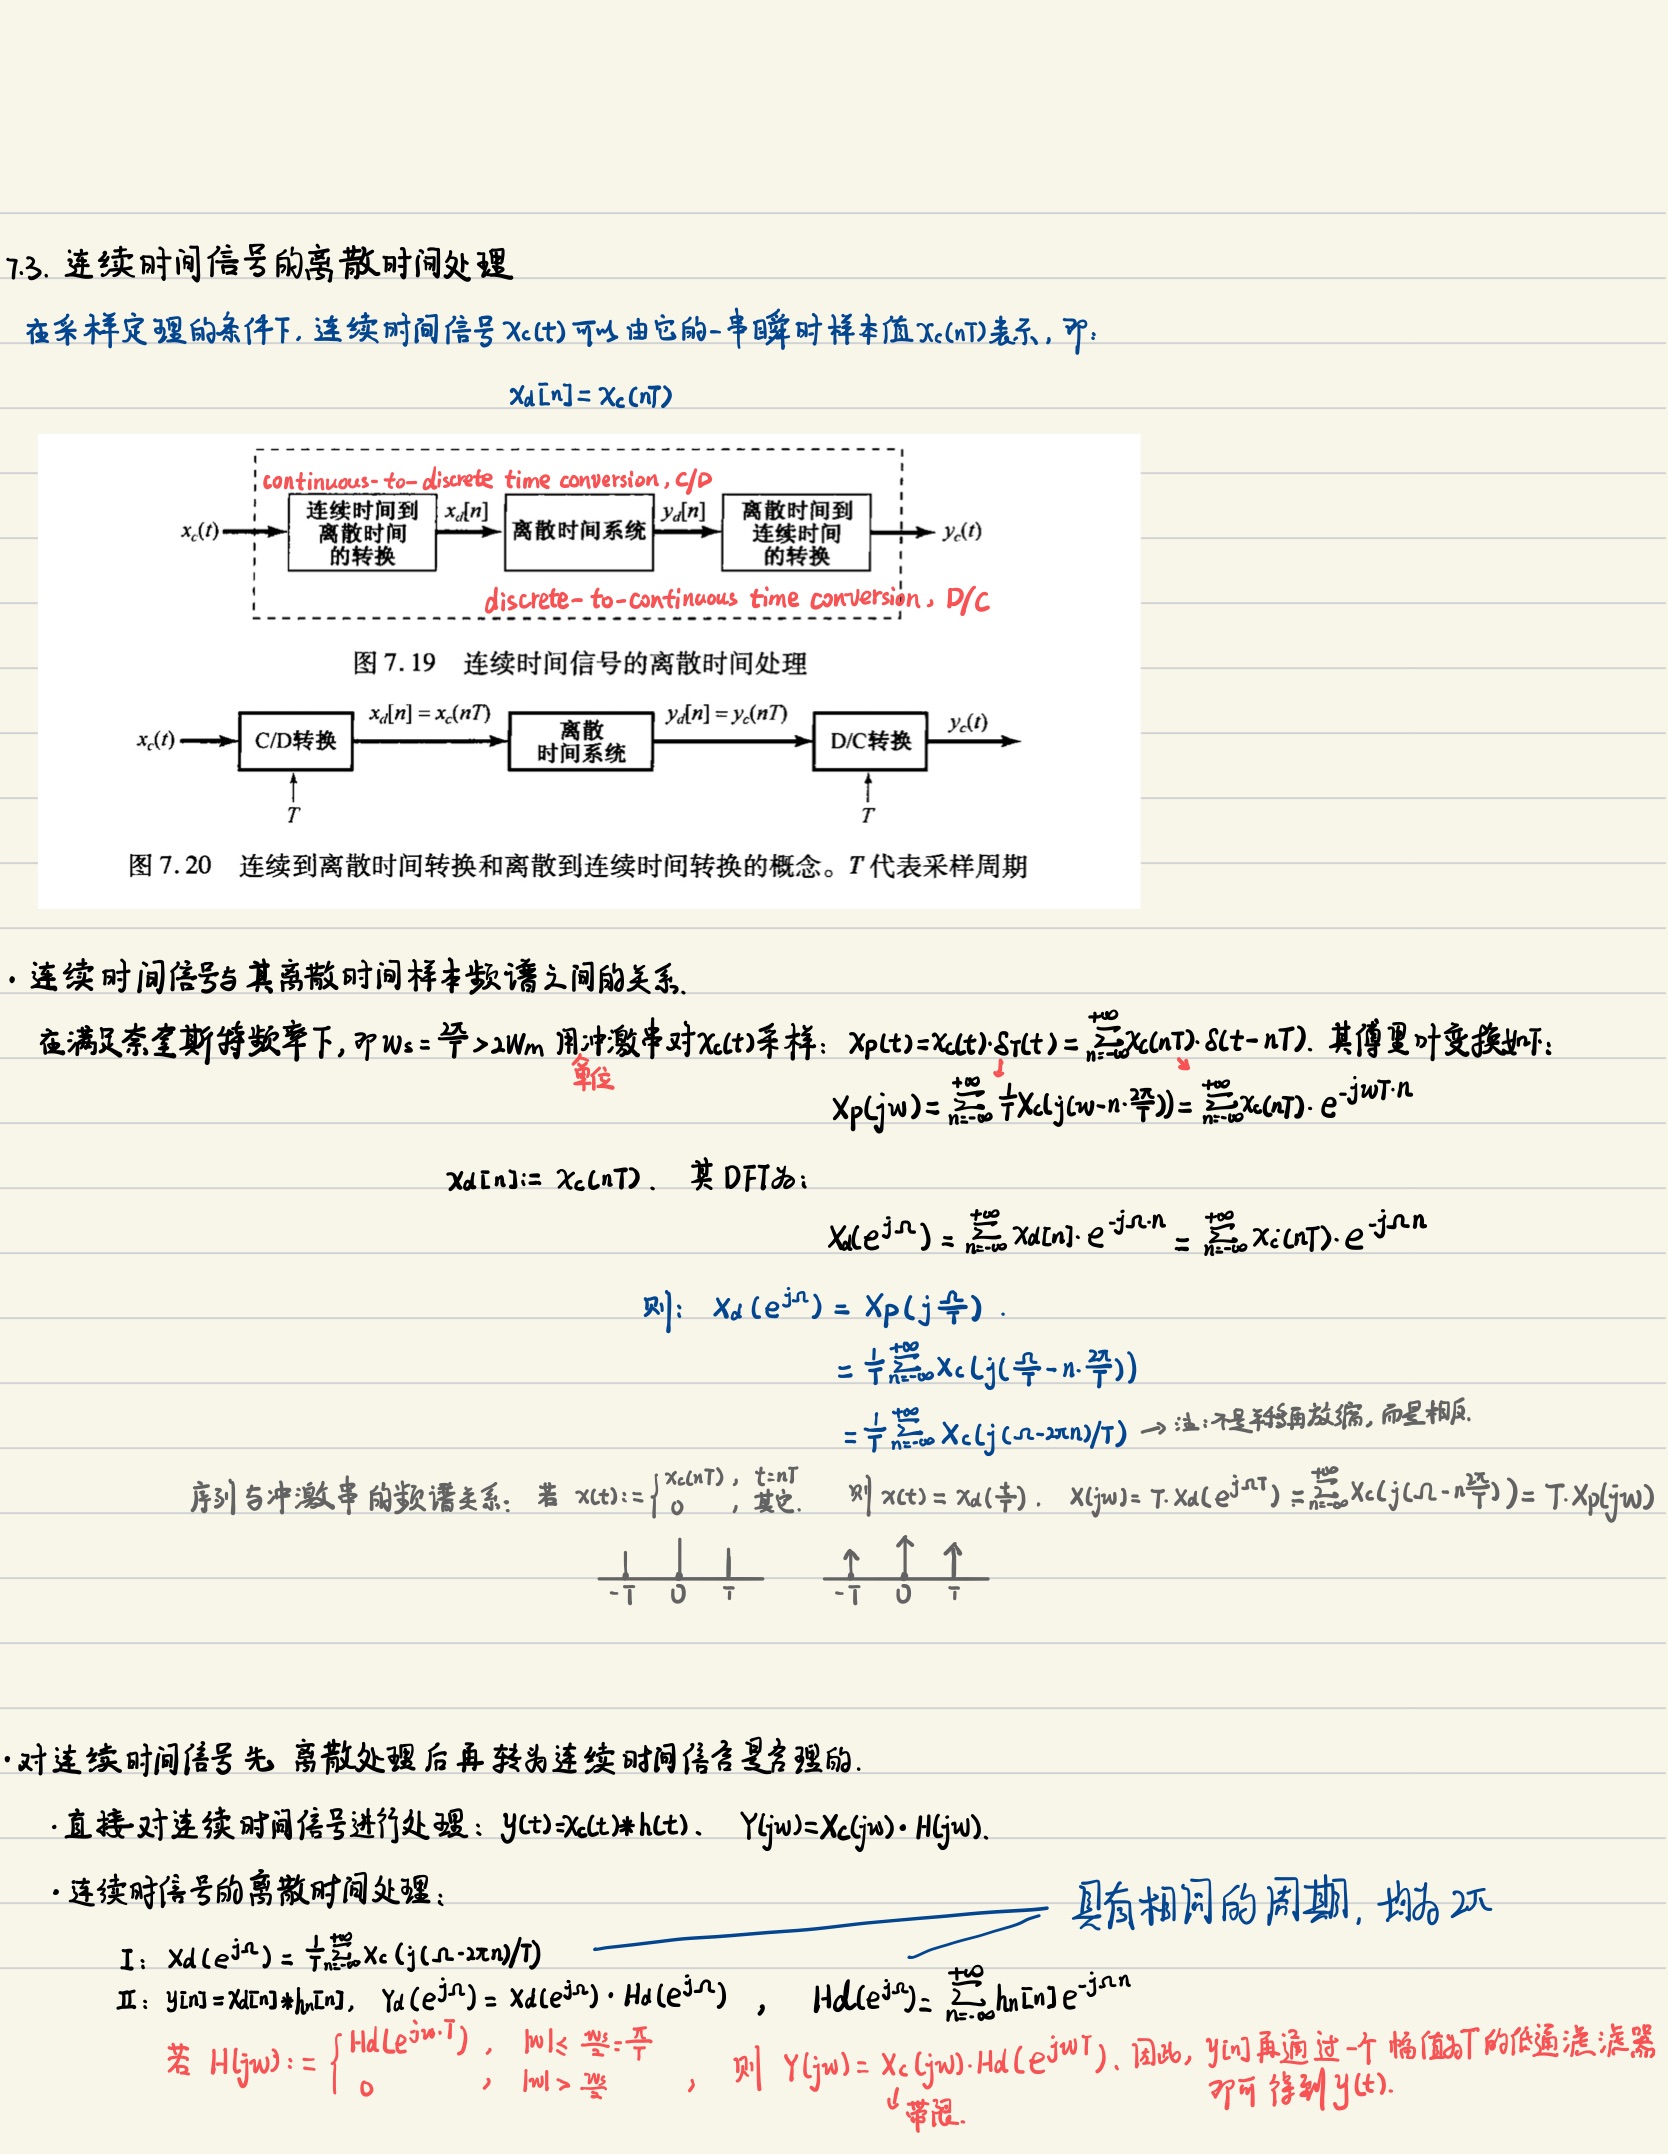 7.3. 连续时间信号的离散时间处理
在采样定理的条件下, 连续时间信号 xc(t) 可以由它的一串瞬时样本值 xc(nT) 表示, 即:
xd[n] = xc(nT)
continuous-to-discrete time conversion, C/D
xc(t) 连续时间到离散时间的转换 xd[n] 离散时间系统 yd[n] 离散时间到连续时间的转换 yc(t)
discrete-to-continuous time conversion, D/C
图 7.19 连续时间信号的离散时间处理
xc(t) C/D转换 xd[n] = xc(nT) 离散时间系统 yd[n] = yc(nT) D/C转换 yc(t)
T T
图 7.20 连续到离散时间转换和离散到连续时间转换的概念。T 代表采样周期
· 连续时间信号与其离散时间样本频谱之间的关系.
在满足奈奎斯特频率下, 即 ws = 2π/T > 2wm 用冲激串对 xc(t) 采样: xp(t) = xc(t)·δT(t) = Σ_{n=-∞}^{+∞} xc(nT)·δ(t-nT). 其傅里叶变换如下:
单位
Xp(jw) = Σ_{n=-∞}^{+∞} 1/T Xc(j(w-n·2π/T)) = Σ_{n=-∞}^{+∞} xc(nT)·e^{-jwT·n}
xd[n] := xc(nT). 其 DFT 为:
Xd(e^{jΩ}) = Σ_{n=-∞}^{+∞} xd[n]·e^{-jΩ·n} = Σ_{n=-∞}^{+∞} xc(nT)·e^{-jΩn}
则: Xd(e^{jΩ}) = Xp(j Ω/T).
= 1/T Σ_{n=-∞}^{+∞} Xc(j(Ω/T - n·2π/T))
= 1/T Σ_{n=-∞}^{+∞} Xc(j(Ω-2πn)/T) → 注: 不是平移再放缩, 而是相反.
序列与冲激串的频谱关系: 若 x(t) := { xc(nT), t=nT; 0, 其它. 则 x(t) = xd(t/T). X(jw) = T·Xd(e^{jΩT}) = Σ_{n=-∞}^{+∞} Xc(j(Ω-n2π/T)) = T·Xp(jw)
-T 0 T -T 0 T
· 对连续时间信号先离散处理后再转为连续时间信号是合理的.
· 直接对连续时间信号进行处理: y(t)=xc(t)*h(t). Y(jw)=Xc(jw)·H(jw).
· 连续时信号的离散时间处理:
具有相同的周期, 均为 2π
I: Xd(e^{jΩ}) = 1/T Σ_{n=-∞}^{+∞} Xc(j(Ω-2πn)/T)
II: y[n] = xd[n]*hn[n], Yd(e^{jΩ}) = Xd(e^{jΩ})·Hd(e^{jΩ}), Hd(e^{jΩ}) = Σ_{n=-∞}^{+∞} hn[n] e^{-jΩn}
若 H(jw) := { Hd(e^{jw·T}), |w| ≤ ws/2 = π/T; 0, |w| > ws/2, 则 Y(jw) = Xc(jw)·Hd(e^{jwT}). 因此, y[n] 再通过一个幅值为T的低通滤滤器
即可得到 y(t).
带限.